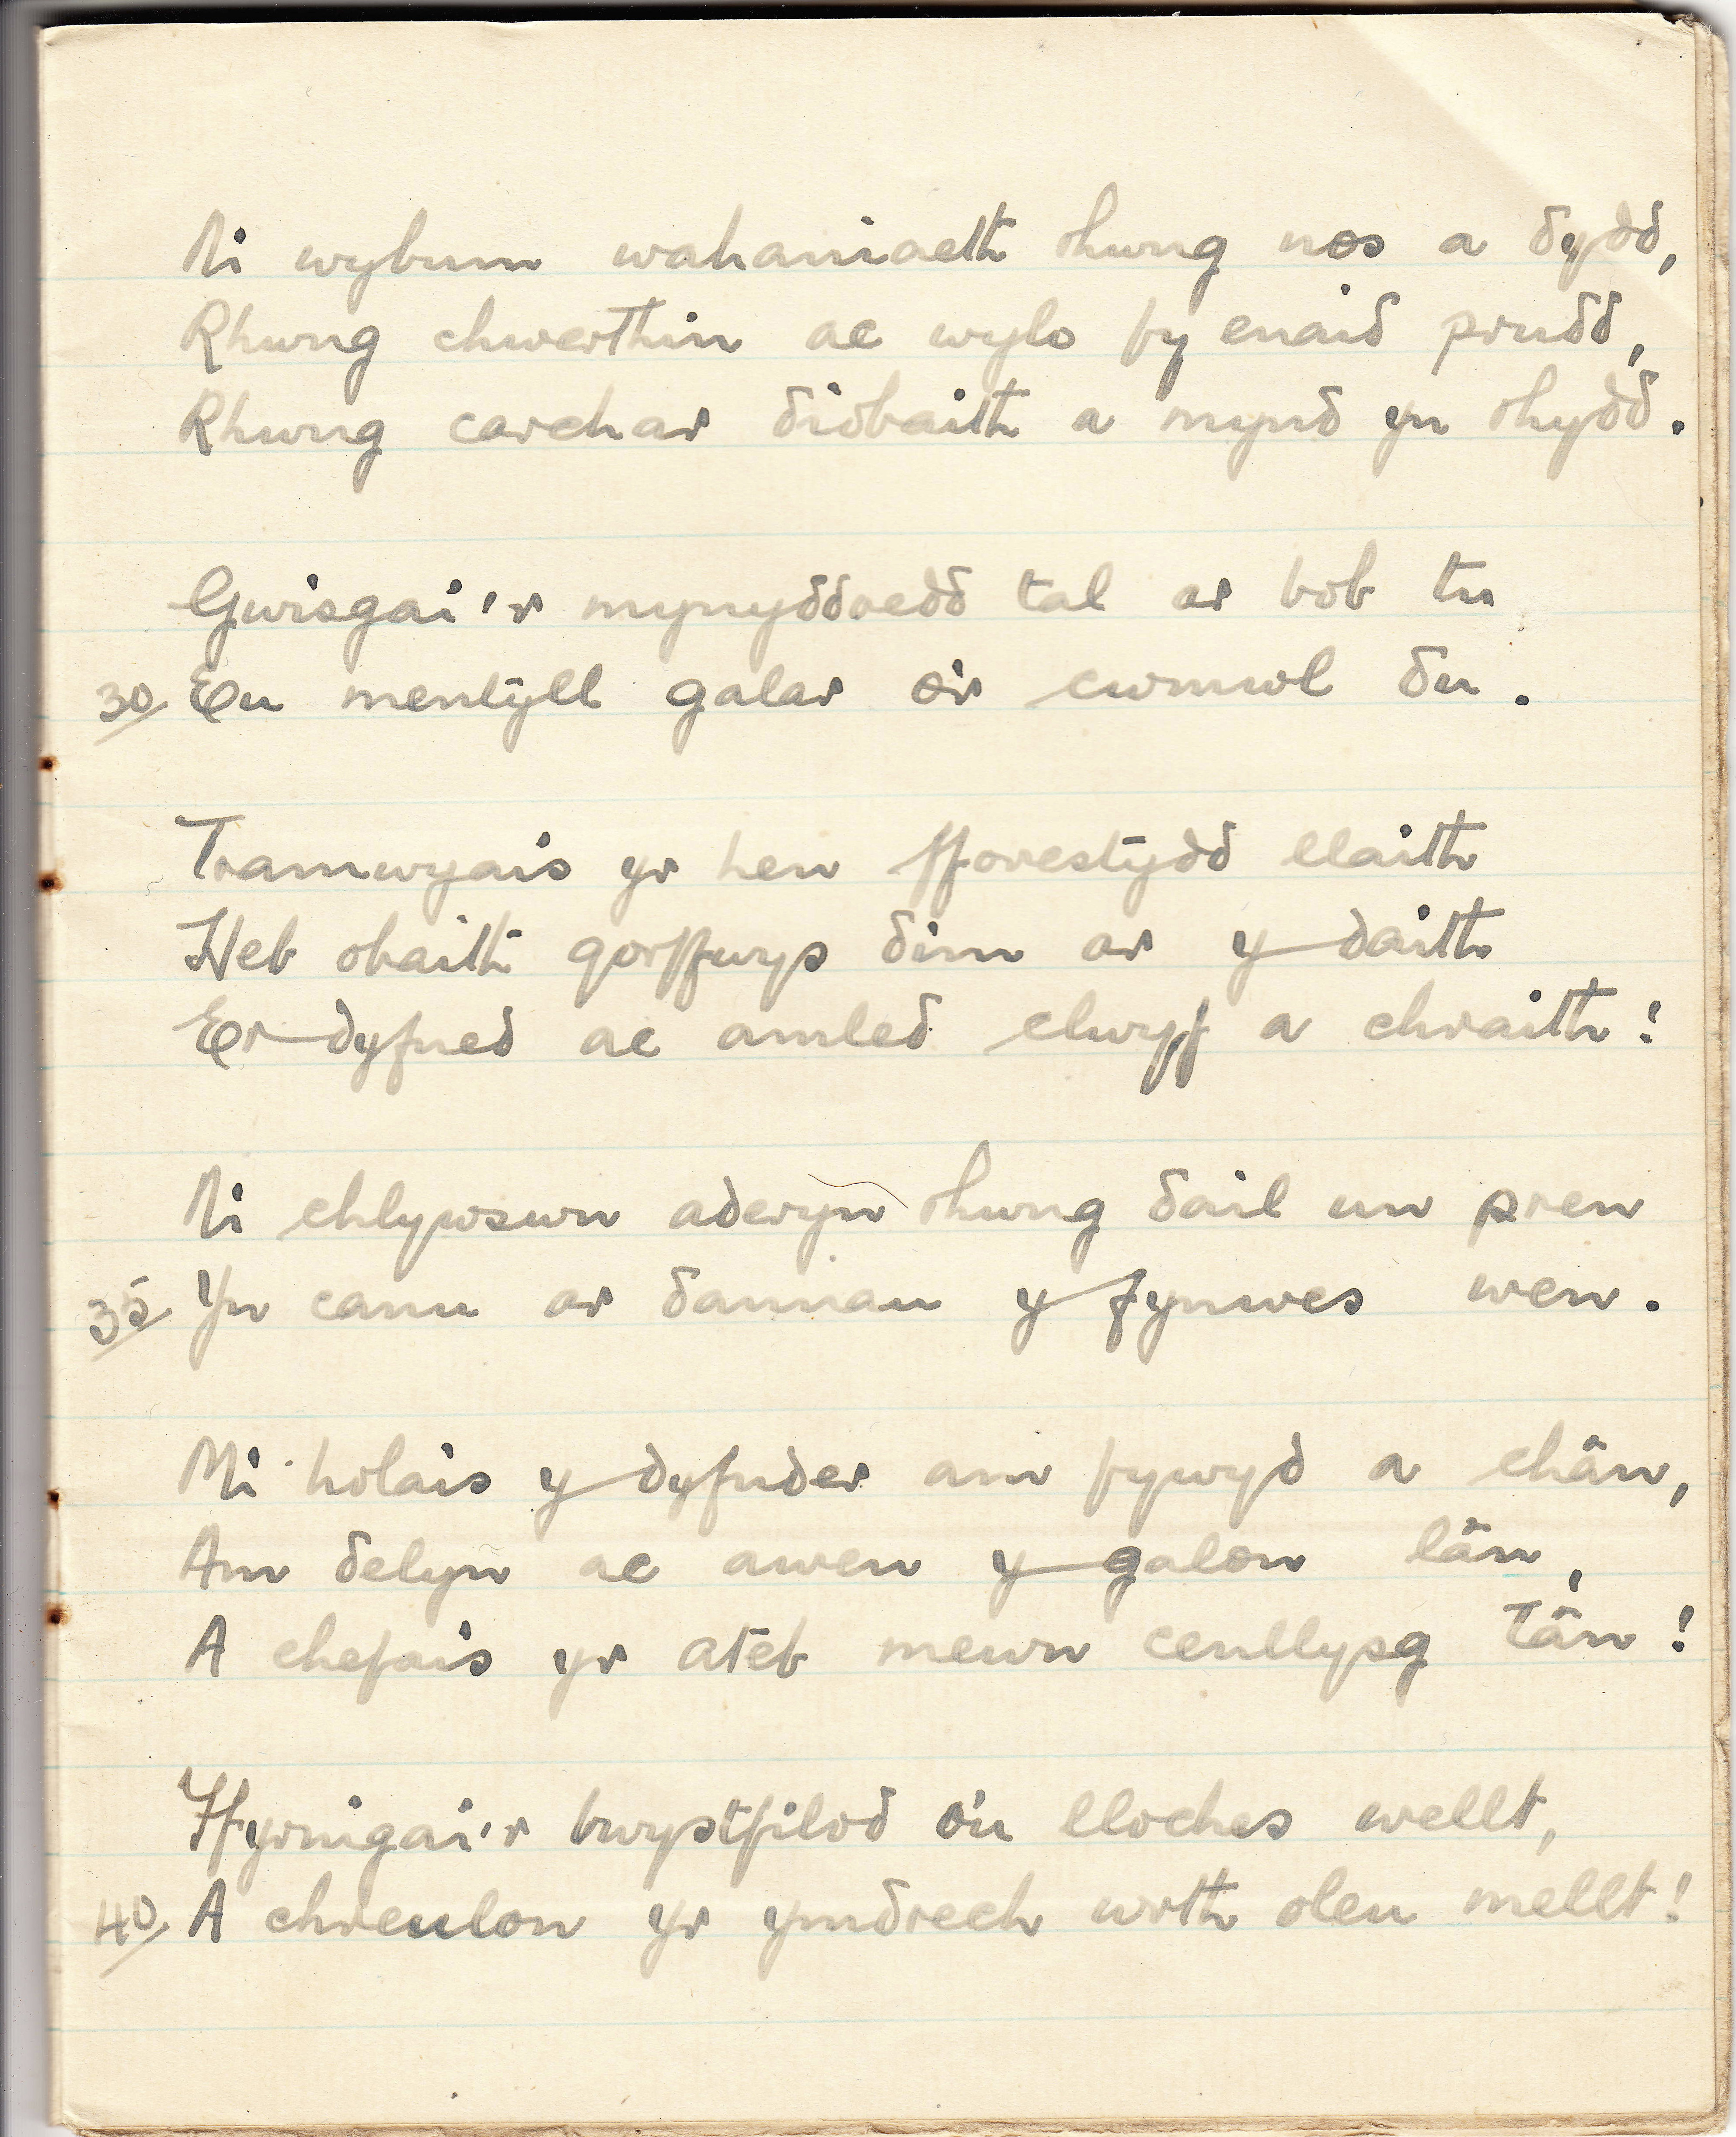 Ni wybum wahaniaeth rhwng nos a dydd,
Rhwng chwerthin ac wylo fy enaid prudd,
Rhwng carchar diobaith a mynd yn rhydd.
Gwisgai'r mynyddoedd tal ar bob tu
30 Eu mentyll galar o'r cwmwl du.
Tramwyais yr hen fforestydd llaith
Heb obaith gorffwys dim ar y daith
Er dyfned ac amled clwyf a chraith!
Ni chlywswn aderyn rhwng dail un pren
35 Yn canu ar dannau y fynwes wen.
Mi holais y dyfnder am fywyd a chân,
Am delyn ac awen y galon lân,
A chefais yr ateb mewn cenllysg tân!
Ffyrnigai'r bwystfilod o'u lloches wellt,
40 A chreulon yr ymdrech wrth oleu mellt!